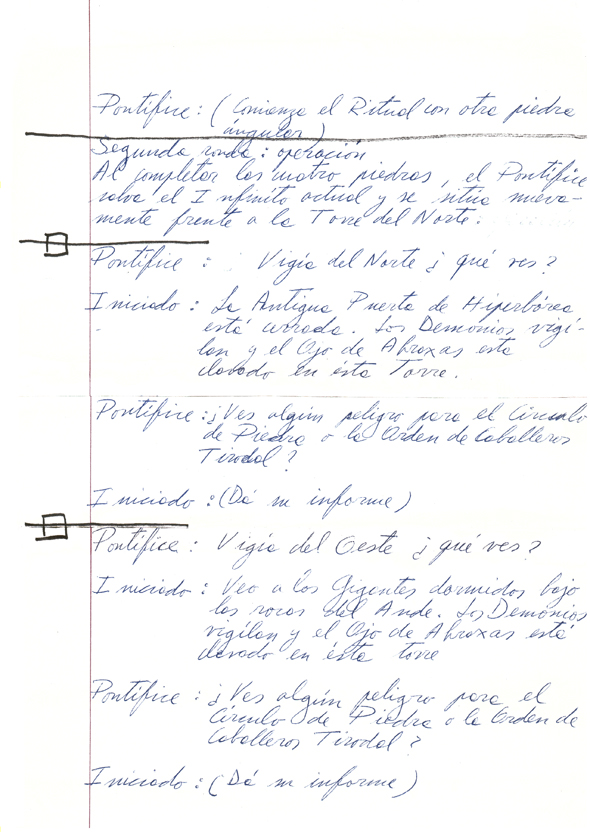 Pontífice : ( Comienza el Ritual con otra piedra
ángular )
Segunda ronda : operación
Al completar las cuatro piedras , el Pontífice
salva el Infinito actual y se sitúa nueva-
mente frente a la Torre del Norte .
Pontífice : Vigía del Norte ¿ qué ves ?
Iniciado : La Antigua Puerta de Hiperbórea
está cerrada . Los Demonios vigi-
lan y el Ojo de Abraxas está
clavado en ésta Torre .
Pontífice : ¿ Ves algún peligro para el Círculo
de Piedra o la Orden de Caballeros
Tirodal ?
Iniciado : (Dá su informe )
Pontífice : Vigía del Oeste ¿ qué ves ?
Iniciado : Veo a los Gigantes dormidos bajo
las rocas del Ande . Los Demonios
vigilan y el Ojo de Abraxas está
clavado en ésta torre
Pontífice : ¿ Ves algún peligro para el
Círculo de Piedra o la Orden de
Caballeros Tirodal ?
Iniciado : (Dá su informe )